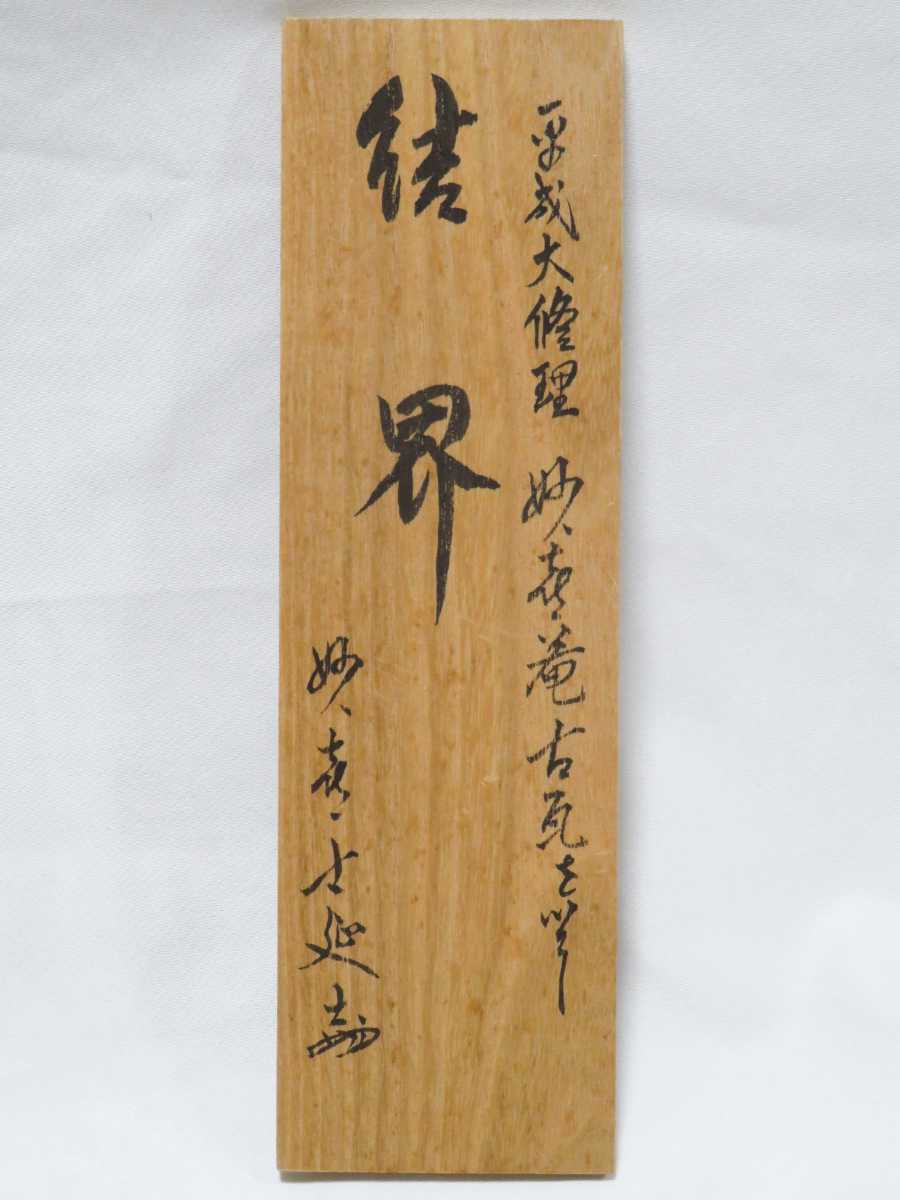 平成大修理 妙喜菴古瓦を以て
結界
妙喜士延